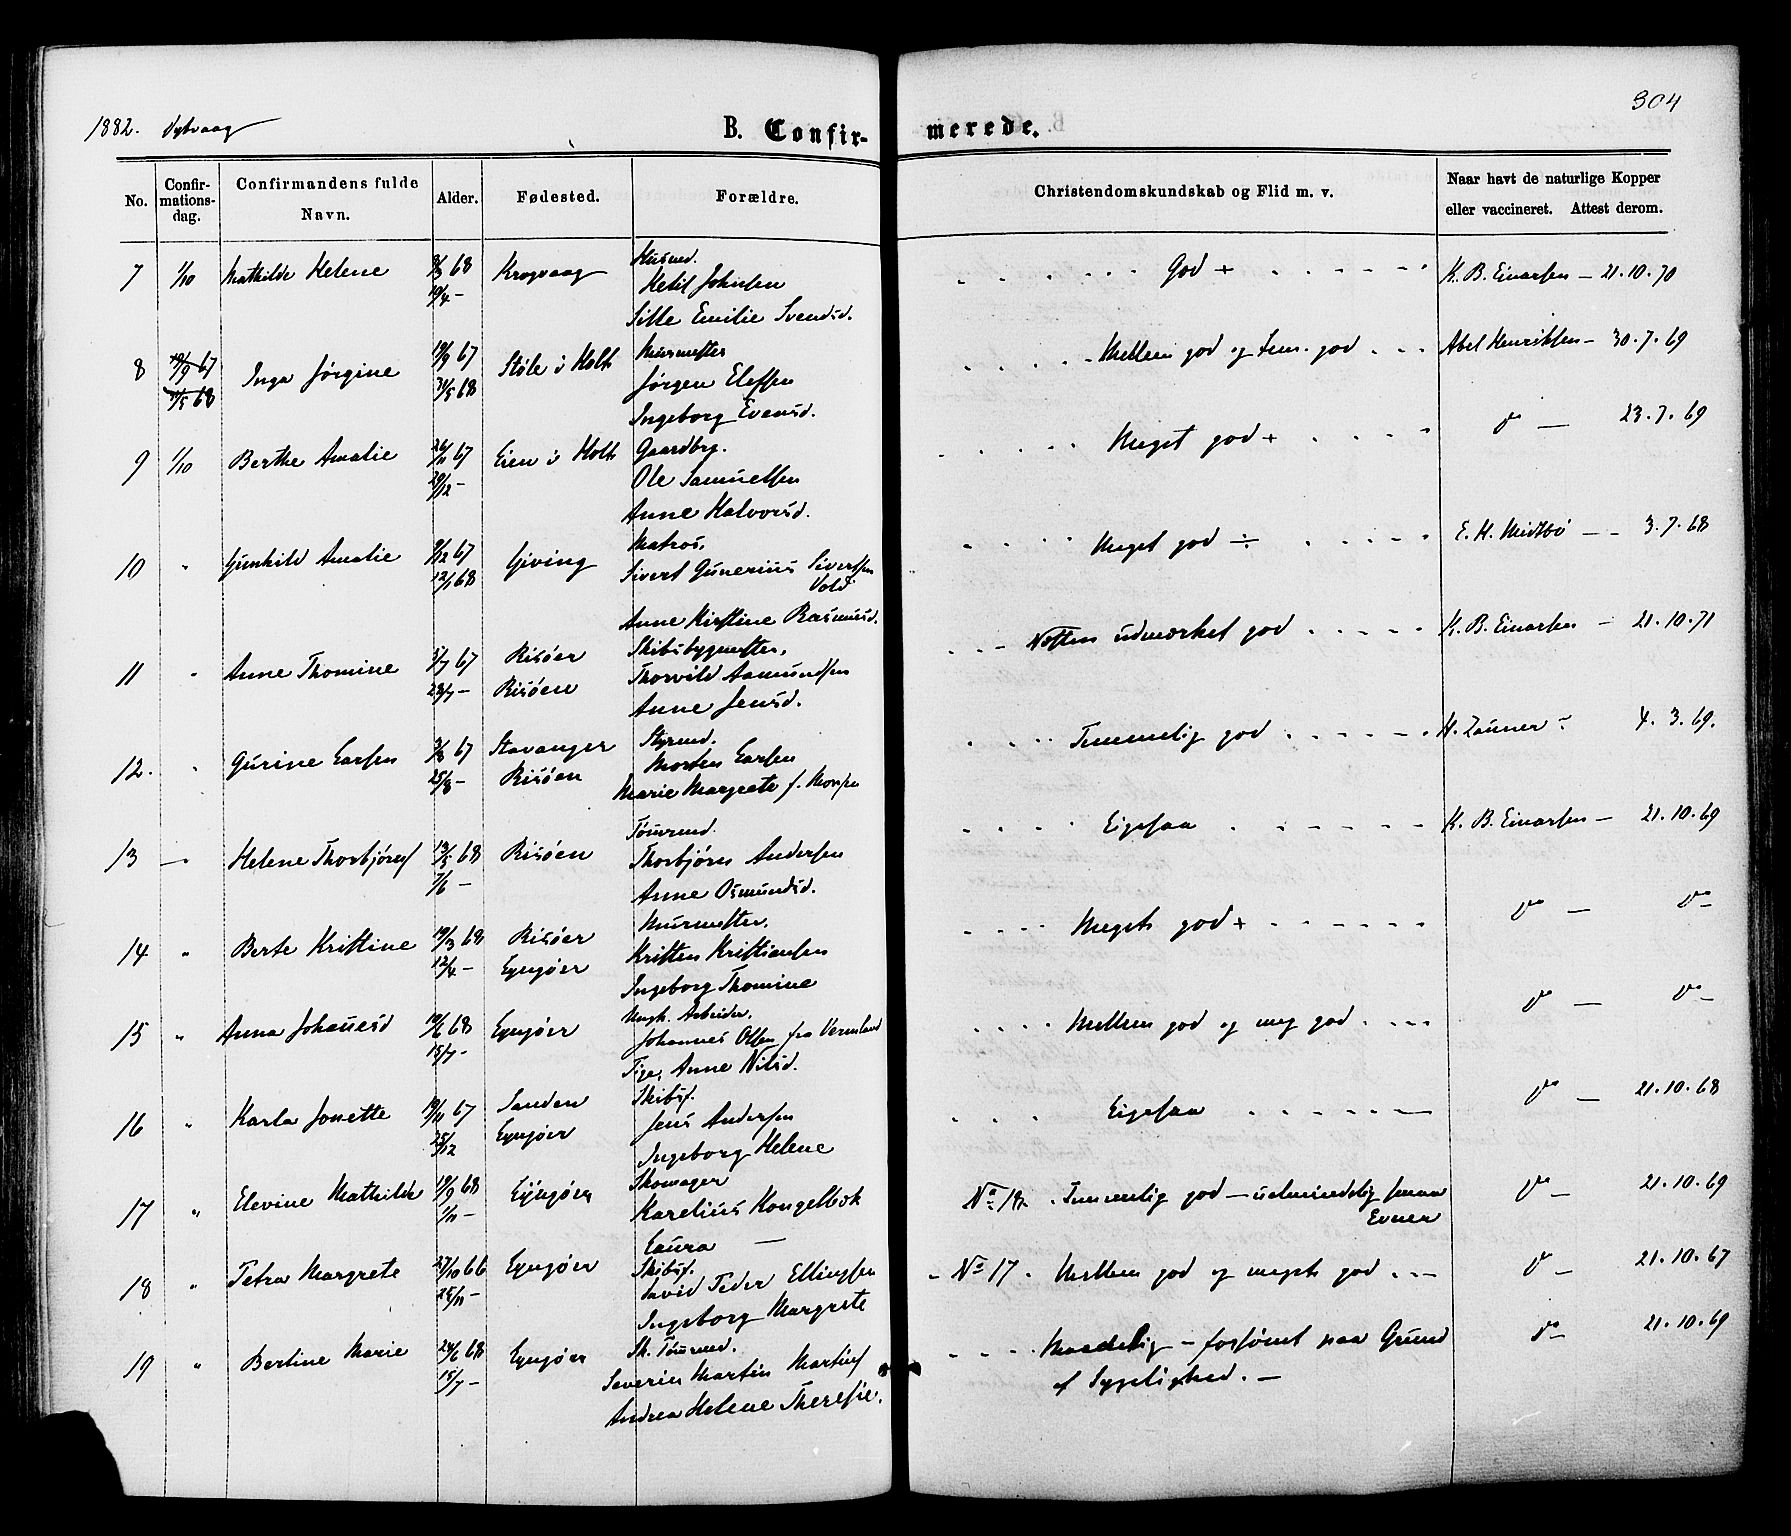 304
1882. Dybvaag
B. Confirmerede.
No. Confirmationsdag. Confirmandens fulde Navn. Alder. Fødested. Forældre. Christendomskundskab og Flid m. v. Naar havt de naturlige Kopper eller vaccineret. Attest derom.
7 1/10 Mathilde Helene 8/3 68 Krogvaag Husmd. God + K. B. Einarsen – 21.10.70
19/4 – Ketil Johnsen
Sille Emilie Svendsd.
8 19/9 67 Inga Jørgine 19/9 67 Støle i Holt Murmester Mellem god og Tem. god Abel Henriksen – 30.7.69
31/5 68 31/5 68 Jørgen Elefsen
Ingeborg Evensd.
9 1/10 Berthe Amalie 26/11 67 Eien i Holt Gaardbr. Meget god + do – 23.7.69
29/12 – Ole Samuelsen
Anne Halvorsd.
10 " Gunhild Amalie 9/12 67 Gjeving Matros. Meget god ÷ E. H. Midtbø – 3.7.68
12/1 68 Sivert Gunerius Sivertsen
Vold
Anne Kirstine Rasmusd.
11 " Anne Thomine 5/7 67 Risøer Skibsbygmester, Næsten udmærket god K. B. Einarsen – 21.10.71
28/7 – Risøen Thorvild Aamundsen
Anne Jensd.
12. " Gurine Larsen 3/8 67 Stavanger Styrmd. Temmelig god H. Zauner – 4.3.69.
25/8 – Risøen Morten Larsen
Marie Margrete f. Monsen
13 – Helene Thorbjørns 13/5 68 Risøen Tømrmd. Eigesaa K. B. Einarsen – 21.10.69
7/6 – Thorbjørn Andersen
Anne Osmundsd.
14 " Berte Kristine 19/3 68 Risøer Murmester. Meget god + do – do
12/4 – Lyngøer Kristen Kristiansen
Ingeborg Thomine
15 " Anna Johannesd 10/6 68 Lyngøer Ungk. Arbeider. Mellem god og meg god do – do
15/7 – Johannes Olsen fra Vermland
Pige, Anne Nilsd.
16 " Karla Jonette 19/11 67 Sanden Skibsf. Eigesaa do – 21.10.68
25/12 Lyngøer Jens Andersen
Ingeborg Helene
17 " Elevine Mathilde 19/9 68 Lyngøer Skomager No 18. Temmelig god – ualmindelig smaa do – 21.10.69
1/11 – Karelius Kongelbek Evner
Laura –
18 " Petra Margrete 27/10 66 Lyngøer Skibsf. No 17. Mellem god og meget god do – 21.10.67
25/11 – David Peder Ellingsen
Ingeborg Margrete
19 " Bertine Marie 24/6 68 Lyngøer Sk. Tømrmd. Maadelig – forsømt paa Grund do – 21.10.69
15/7 – Severin Martin Martins af Sygelighed. –
Andrea Helene Theresie.